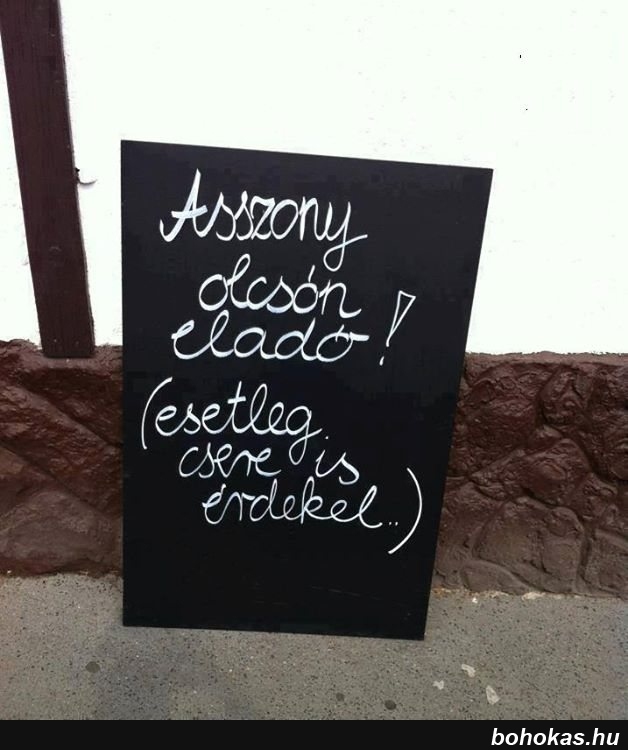 Asszony
olcsón
eladó!
(esetleg
csere is
érdekel..)
bohokas.hu